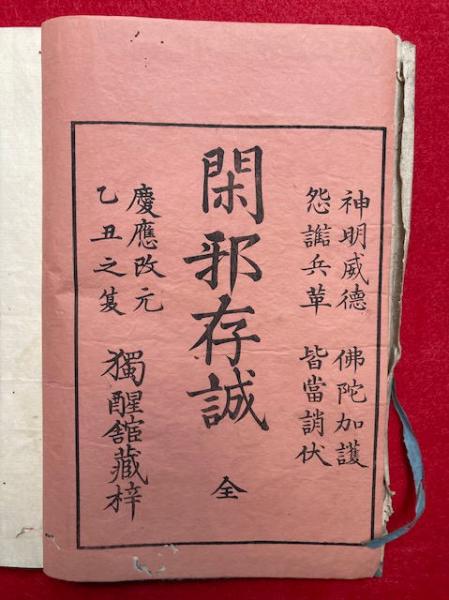 神明威德 佛陀加護
怨讟兵革 皆當誚伏
閑邪存誠 全
慶應改元
乙丑之夏
獨醒舘藏梓